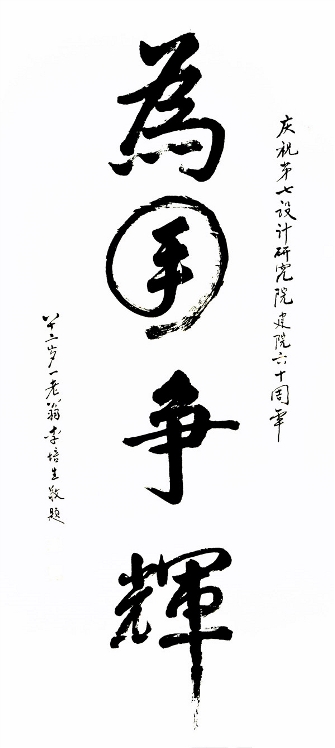 庆祝第七设计研究院建院六十周年
為国争輝
八十二岁一老翁李培生敬题